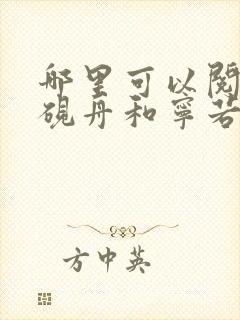 哪里可以阅
砚丹和宁若
方中英